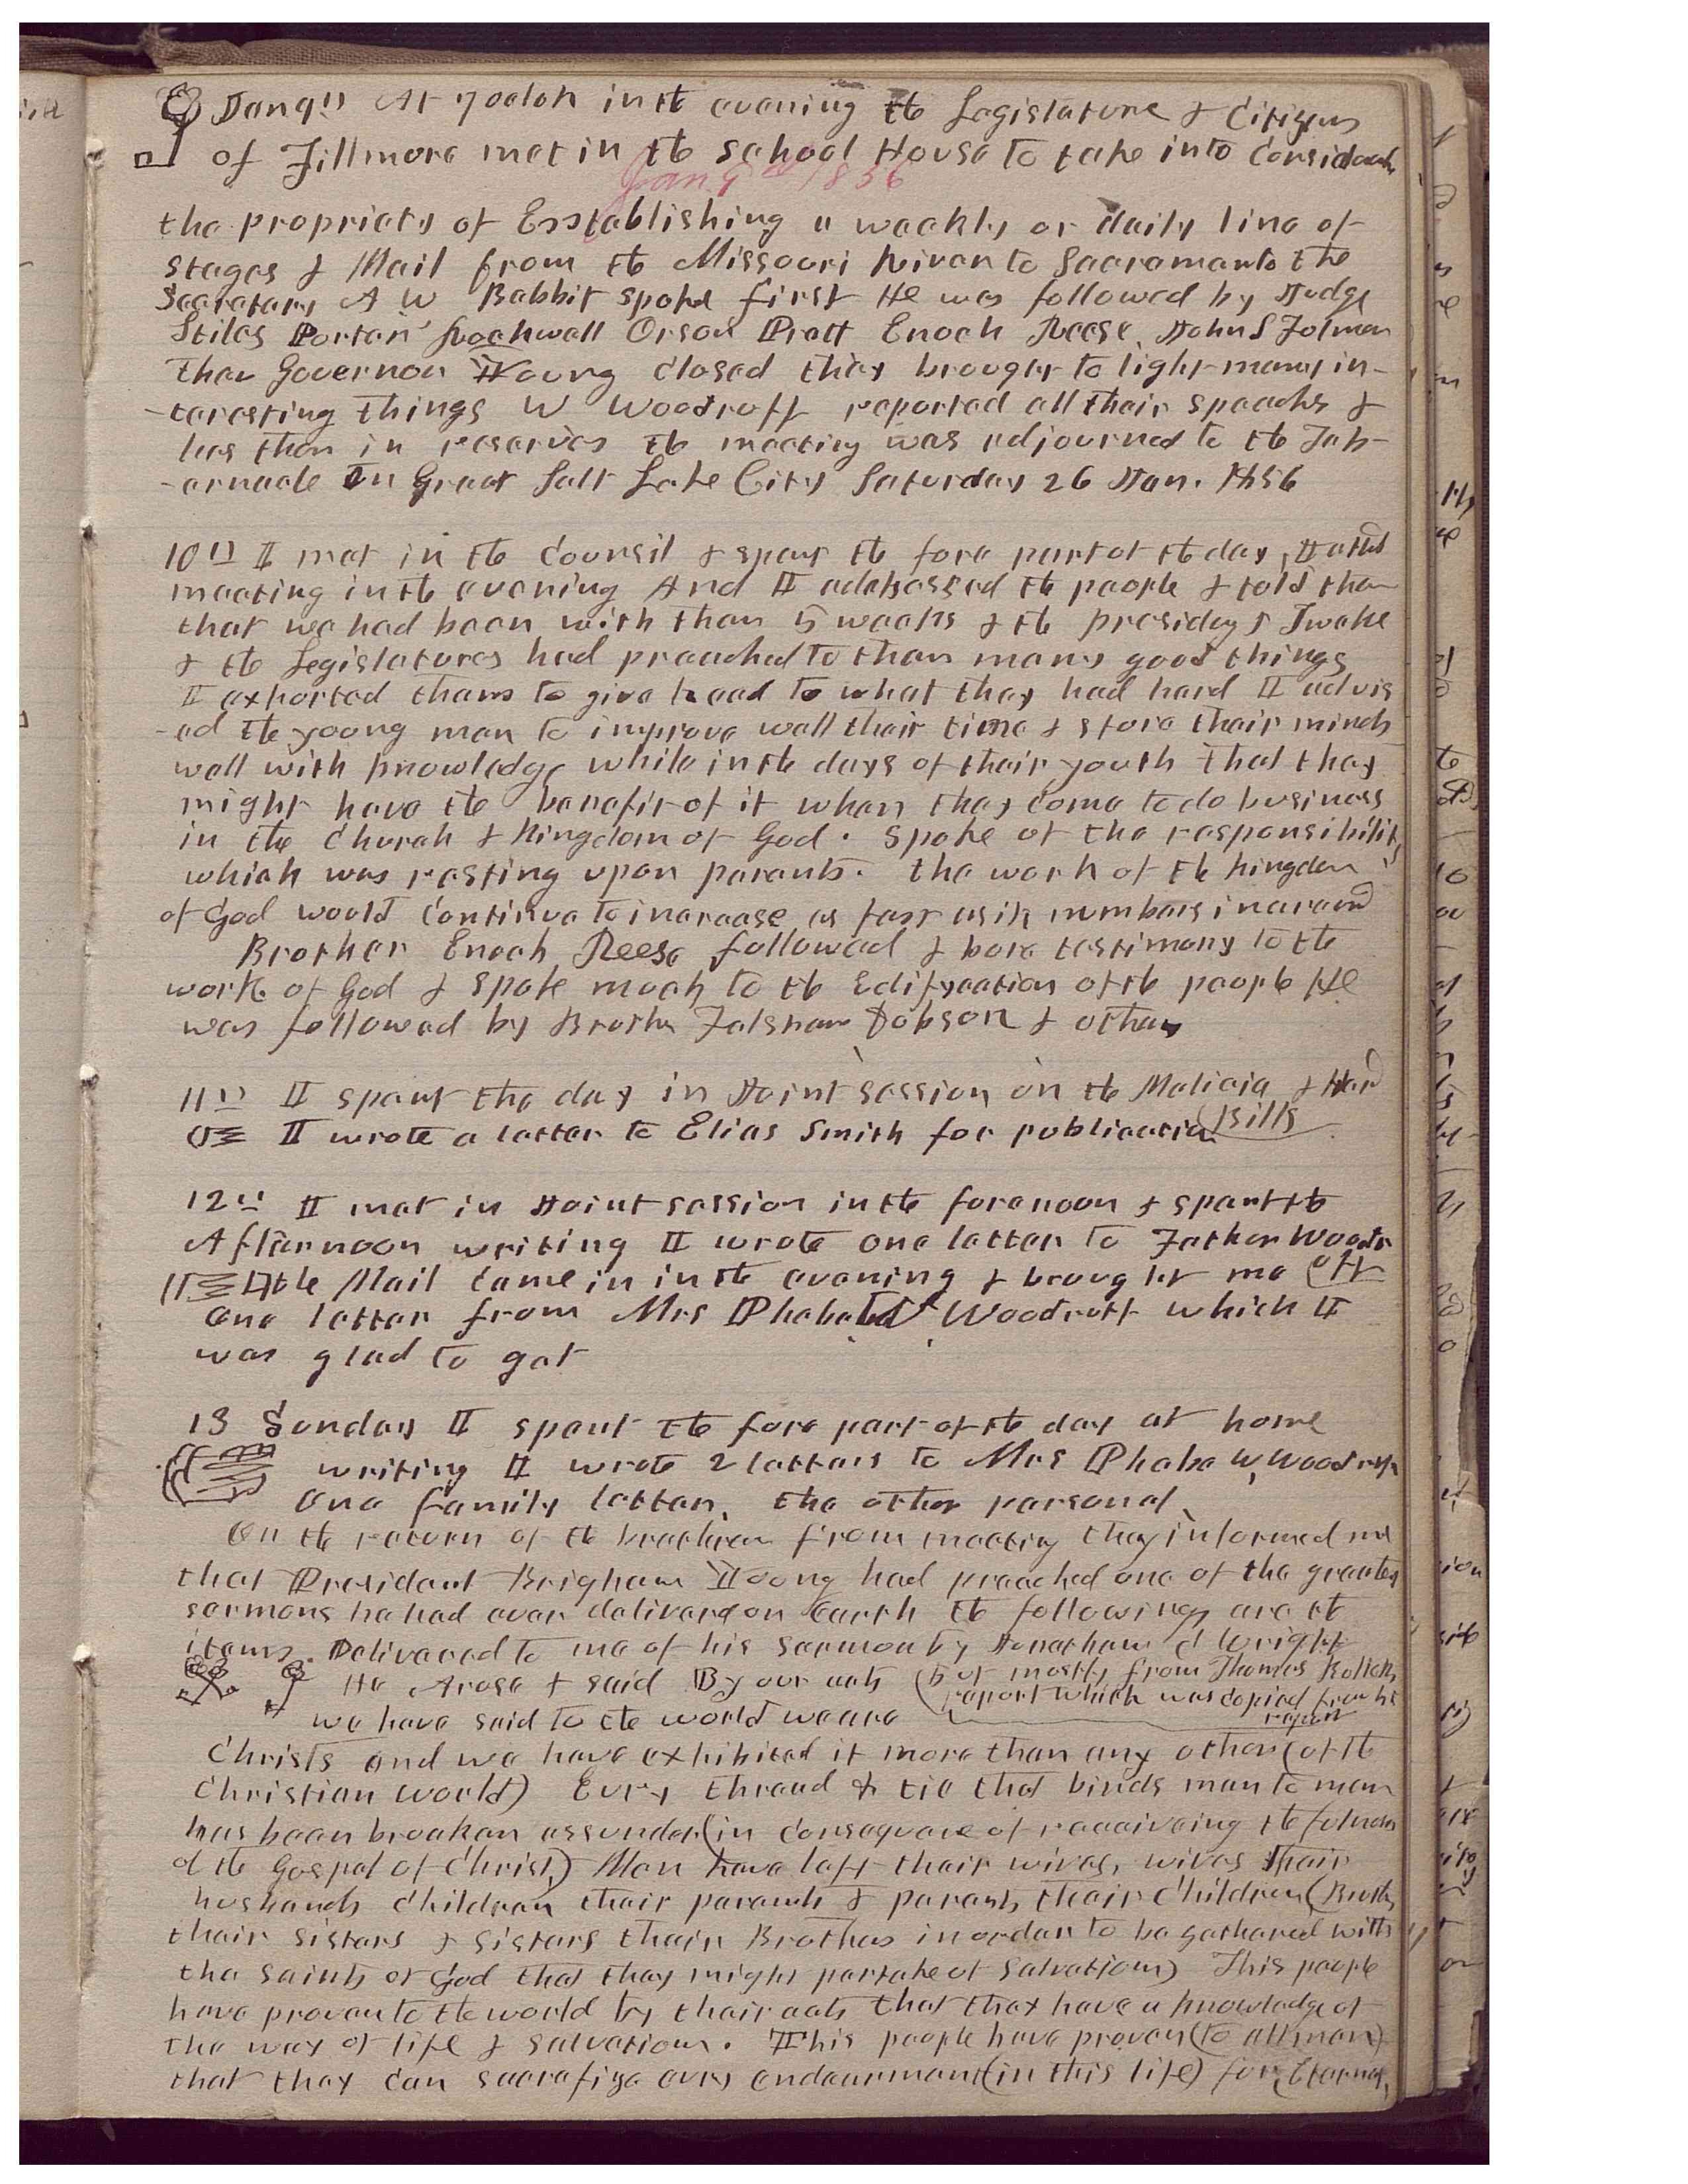 Jan 9th At 7 oclok in the evening the Legislature & Citizens
of Fillmore met in the school House to take into Considerath
Jan 9th 1856
the propriety of Esstablishing a weekly or daily line of
stages & Mail from the Missouri River to Sacramento the
Secretary A W Babbit spoke first He was followed by Judge
Stiles Porter Rockwell Orson Pratt Enoch Reese, John S Folmer
Then Governor Young closed they brought to light many in-
-teresting things W Woodruff reported all their speechs &
has them in reserves the meeting was adjourned to the Tab-
-ernacle in Great Salt Lake City Saturday 26 Jan. 1856
10th I met in the Council & spent the fore part of the day, I atted
meeting in the evening And I addressed the people & told them
that we had been with them 5 weeks & the presidey & Twelve
& the Legislatures had preached to them many good things
I exhorted them to give head to what they had hard I advis
-ed the young men to improve well their time & store their minds
well with knowledge while in the days of their youth That they
might have the benefit of it when they come to do business
in the Church & Kingdom of God. Spoke of the responsibility
which was resting upon parents. the work of the kingdom
of God would Continue to increase as fast as its numbers increased
Brother Enoch Reese followed & bore testimony to the
work of God & spoke much to the Edifycation of the people He
was followed by Brother Felshaw Dobson & others
11th I spent the day in Joint session on the Malicia & Herd
Bills
I wrote a letter to Elias Smith for publication
12th I met in Joint session in the forenoon & spent the
Afternoon writing I wrote one letter to Father Woodr
uff
The Mail Came in in the evening & brought me
one letter from Mrs Phebe W Woodruff which I
was glad to get
13 Sunday I spent the fore part of the day at home
writing I wrote 2 letters to Mrs Phebe W. Woodruff
one family letter, the other personal,
On the return of the brethren from meeting they informed me
that President Brigham Young had preached one of the greatest
sermons he had ever delivered on earth the following are the
items. Delivered to me of his sermon by Jonathan C Wright
He Arose & said By our acts (but mostly from Thomas Bullock
report which was copied from his
report
we have said to the world we are
Christs and we have exhibited it more than any other (of the
Christian World) Evry thread & tie that binds man to man
has been broaken assunder (in Consequence of receiveing the fulness
of the Gospel of Christ,) Men have left their wives, wives their
husbands Children their parents & parents their Children (Broth
their sisters & sisters their Brothers in order to be gathered with
the saints of God that they might partake of Salvation) This people
have proven to the world by their acts that they have a knowledge of
the way of life & salvation. This people have proven (to all men)
that they Can sacrafize evry endeerment (in this life) for Eternal,